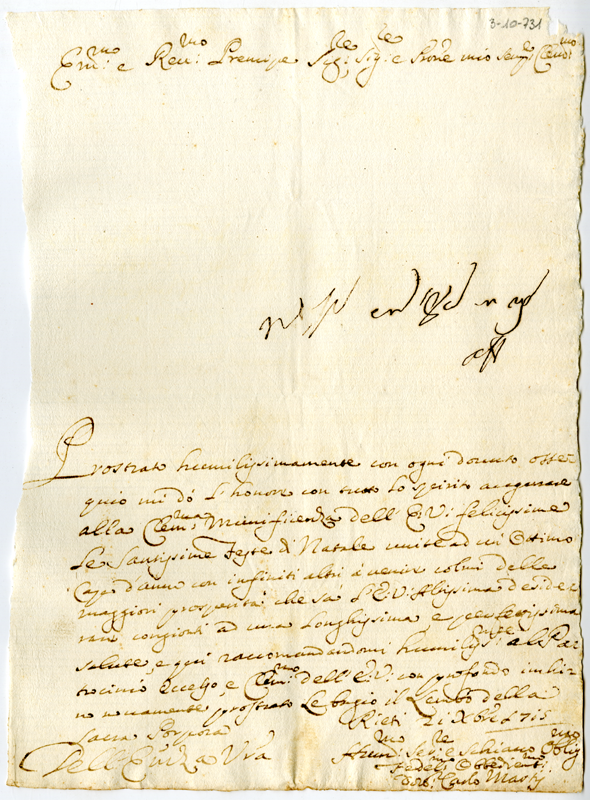 3-10-731
Em:mo e Reu:mo Prencipe Sig:re Sig:re e Prone mio Semp:e Clem:mo
Prostrato humilissimamente con ogni douuto osse-
quio mi dó l'honore con tutto lo spirito augurare
alla Clem:ma Munificenza dell' E: V: felicissime
le Santissime Feste di Natale unite ad un ottimo
Capo d'anno con infiniti altri à uenire colmi delle
maggiori prosperità che sa l' E: V: Altissima deside-
rare congionti ad una longhissima e perfettissima
salute, e qui raccomandandomi humiliss:mte al Pa-
trocinio Eccelso, e Clem:mo dell' E: V: con profondo inchi-
no nouamente prostrato le bagio il Lembo della
Sacra Porpora Rieti 21 Xbre 1715
Dell' Em:za Vra
Hum: Ser:e Schiauo Oblig:mo
Fedel:mo Obbedient:mo
Carlo Marty